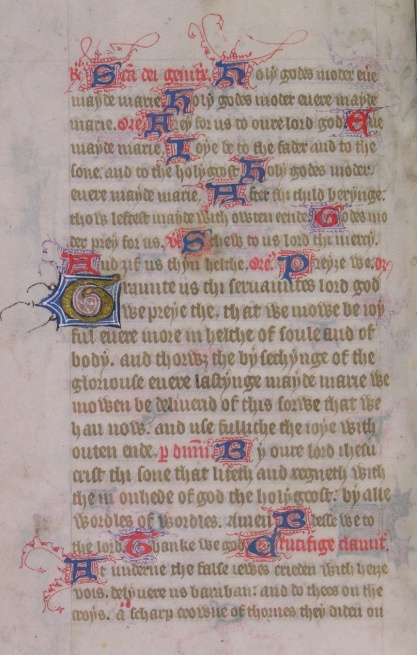 ℟ Scā dei genitr̄. Holy godes moder eue
mayde marie. Holy godes moder euere mayde
marie. ore Prey for us to oure lord god Eue
mayde marie. Ioye be to the fader and to the
sone. and to the holy gost. Holy godes moder.
euere mayde marie. After thi child berynge.
thow leftest mayde with owten eende. Godes mo
der prey for us. ℣e Schew to us lord thi mercy.
And ȝif us thyn helthe. ore. Preye we. or
Graunte us thi seruauntes lord god
we preye the. that we mowe be ioy
ful euere more in helthe of soule and of
body. and thorwȝ the bysechynge of the
gloriouse euere lastynge mayde marie we
mowen be deliuerid of this sorwe that we
han now. and use fulliche the ioye with
outen ende. p dnm̄. By oure lord ihesu
crist thi sone that lifeth and regneth with
the in onhede of god the holy gost. by alle
worldes of worldes. Amen. Blesse we to
the lord. Thanke we god. Crucifige clamit.
At underne the false iewes crieden with heye
vois. delyuere us baraban: and do thees on the
croys. a scharp crowne of thornes they diden on